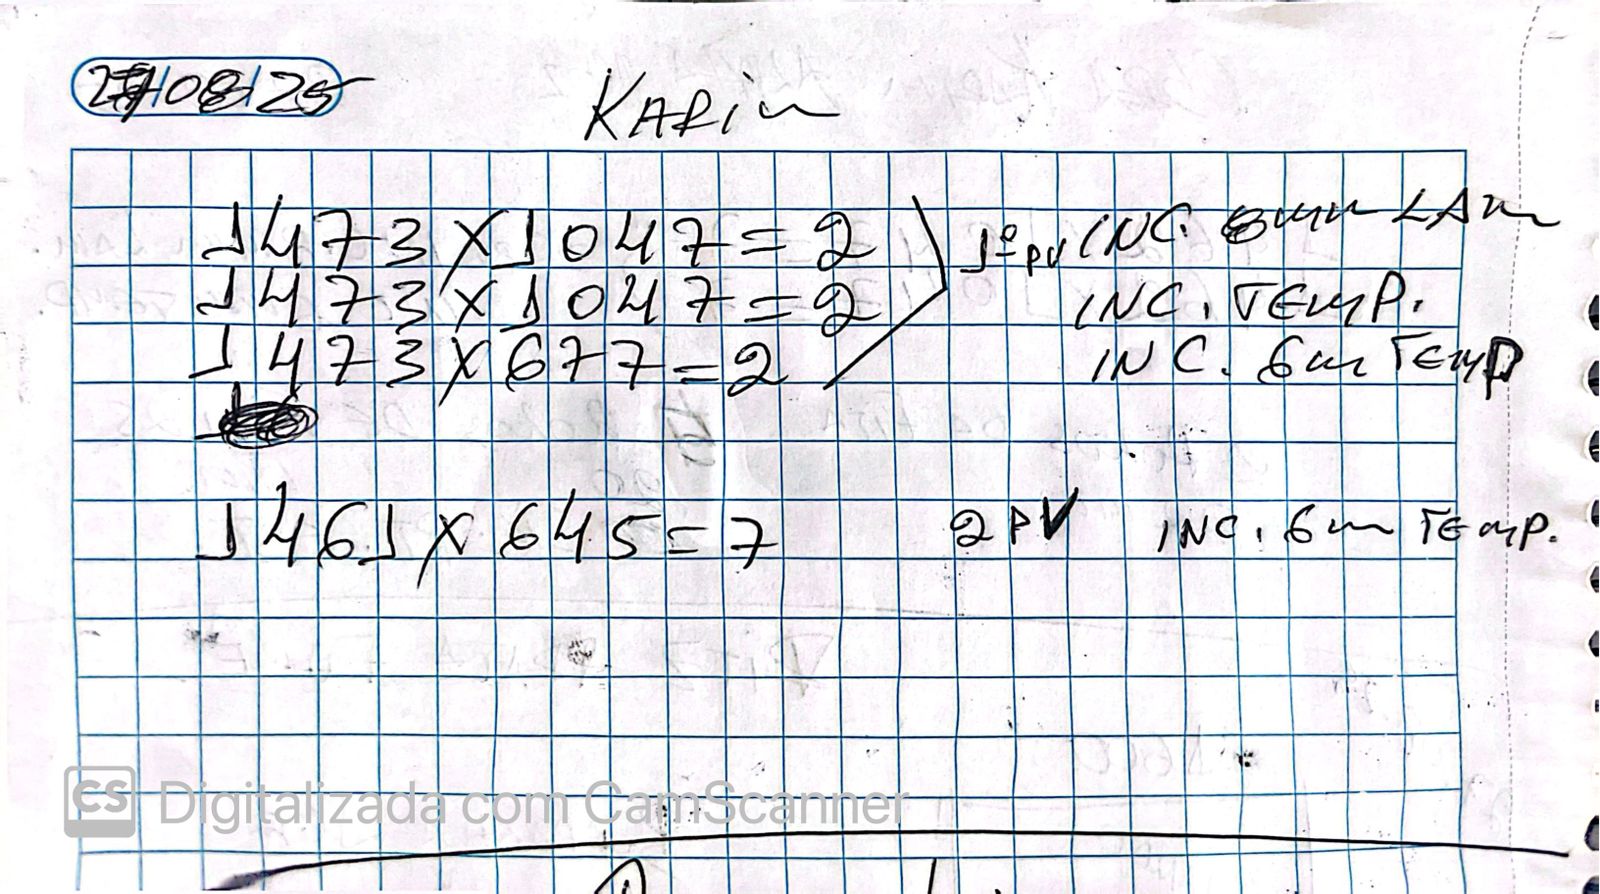 27/08/25
KARin
1473 X 1047 = 2 1º PV INC. 8mm LAm
1473 X 1047 = 2 INC. TEMP.
1473 X 677 = 2 INC. 6m TEMP
1461 X 645 = 7 2 PV INC. 6m TEMP.
CS Digitalizada com CamScanner